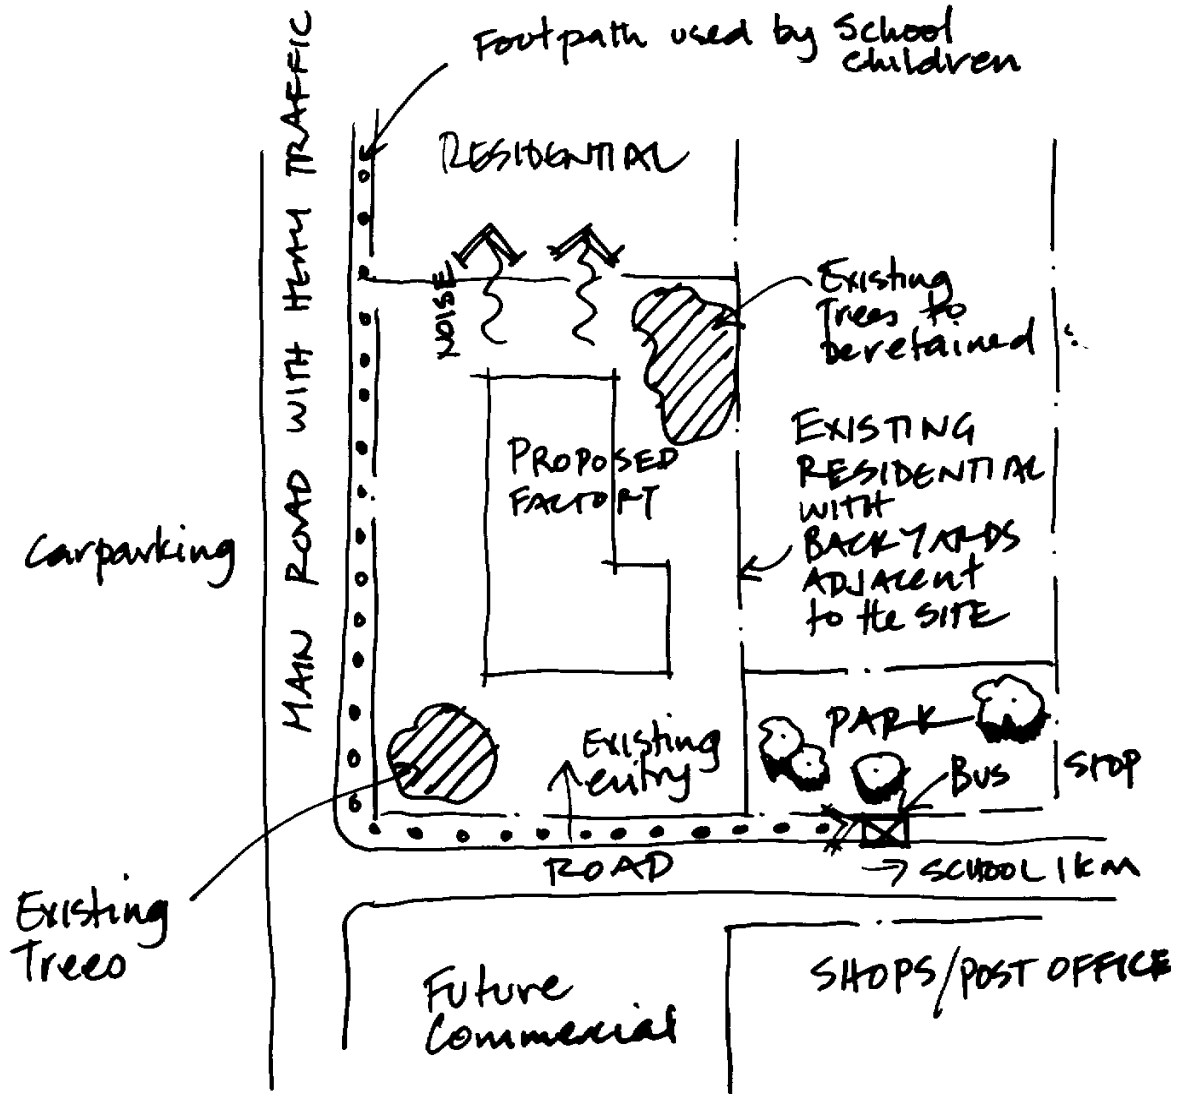 Footpath used by School
children
MAIN ROAD WITH HEAVY TRAFFIC
RESIDENTIAL
NOISE
Existing
Trees to
be retained
PROPOSED
FACTORY
EXISTING
RESIDENTIAL
WITH
BACKYARDS
ADJACENT
to the SITE
Carparking
Existing
entry
PARK
BUS STOP
ROAD
→ SCHOOL 1 KM
Existing
Trees
Future
Commercial
SHOPS/POST OFFICE